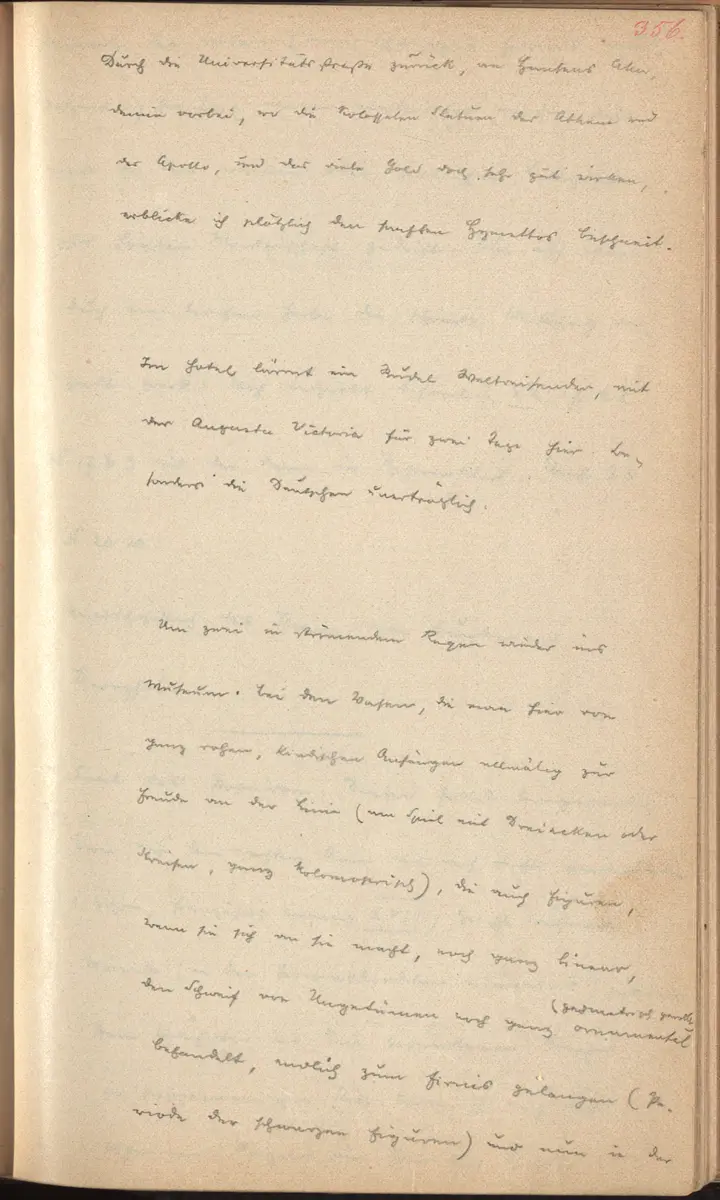 356.
Durch die Universitätsstraße zurück, an Hansens Aka-
demie vorbei, wo die kolossalen Statuen der Athene und
des Apollo, und das viele Gold doch sehr gut wirken,
erblicke ich plötzlich den sanften Hymettos beschneit.
Im Hotel lärmt ein Rudel Weltreisender, mit
der Augusta Victoria für zwei Tage hier. Be-
sonders die Deutschen unerträglich.
Um zwei in strömendem Regen wieder ins
Museum. Bei den Vasen, die man hier von
ganz rohen, kindischen Anfängen allmälig zur
Freude an der Linie (am Spiel mit Dreiecken oder
Kreisen, ganz kolomoserisch), die auch Figuren,
wenn sie sich an sie macht, noch ganz linear,
(geometrisch
den Schweif von Ungetümen noch ganz ornamental
behandelt, endlich zum Firnis gelangen (Pe-
riode der schwarzen Figuren) und nun in der